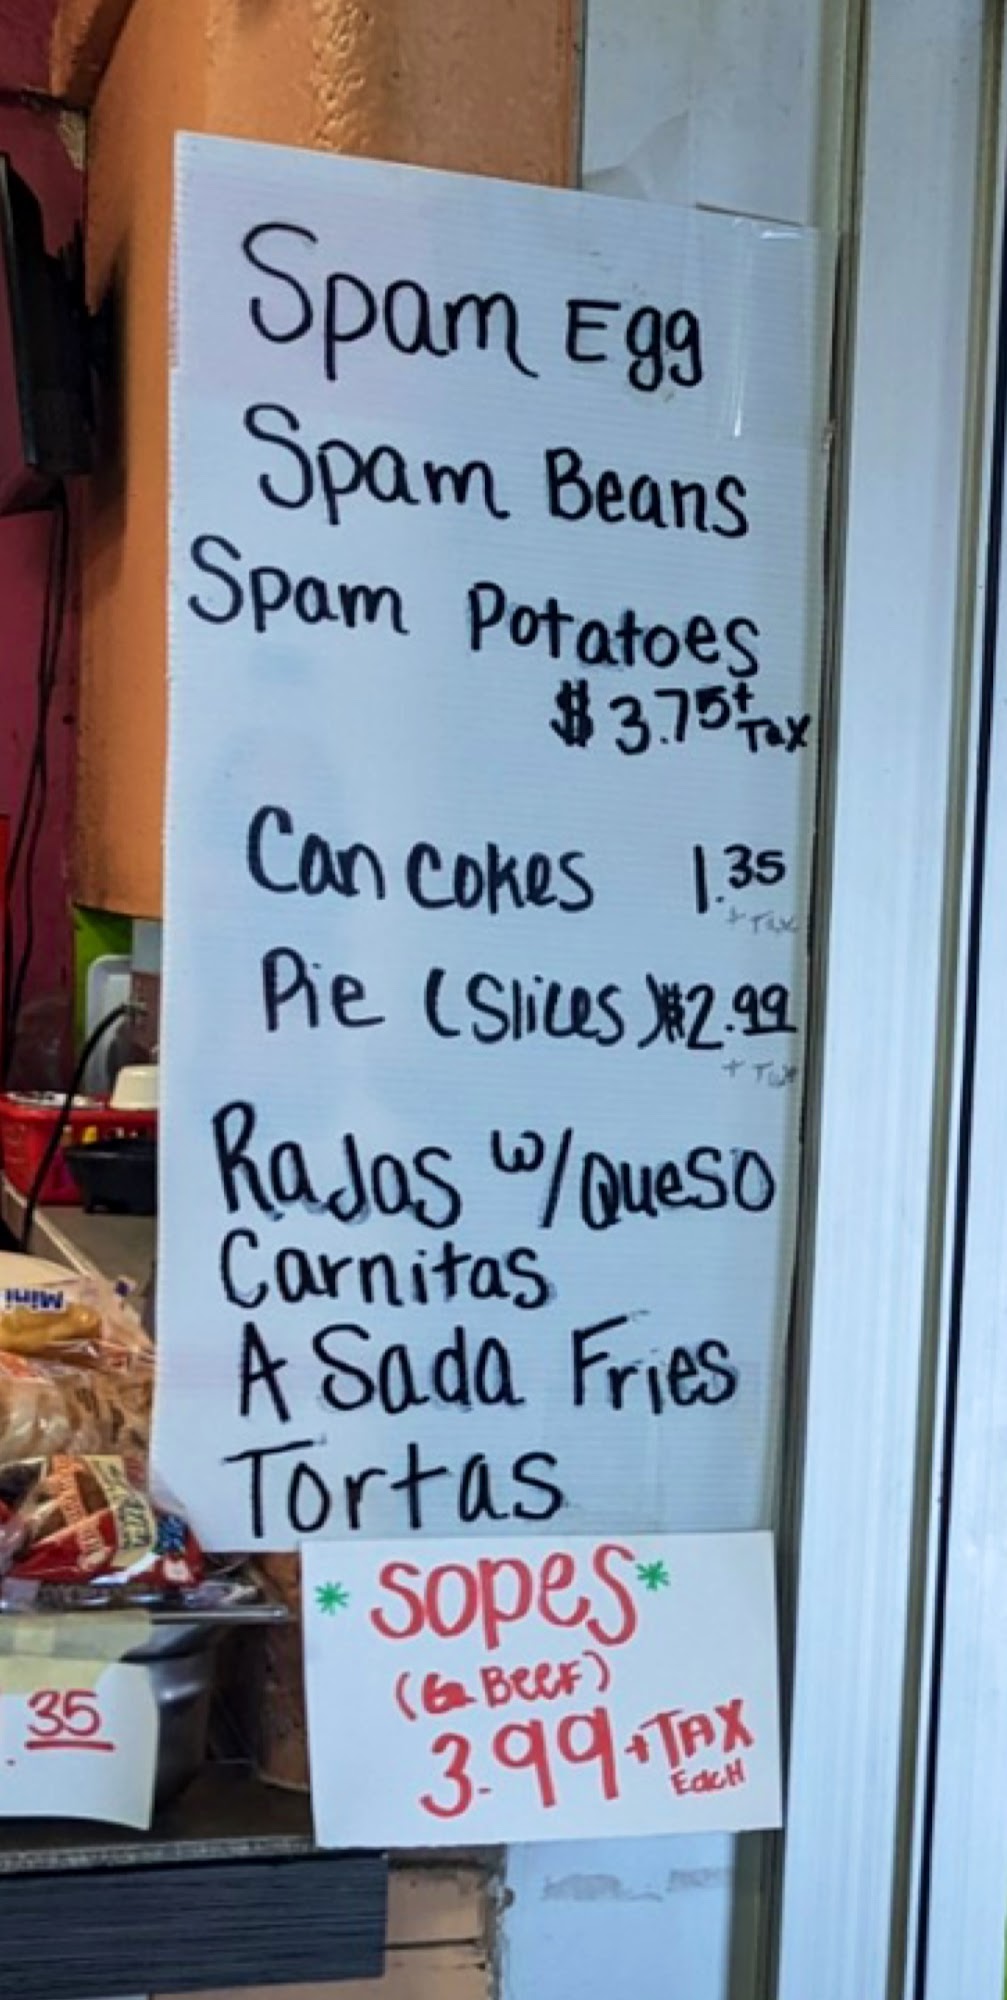 Spam Egg
Spam Beans
Spam Potatoes
$3.75 + Tax
Can Cokes 1.35
+ Tax
Pie (Slices) $2.99
+ Tax
Rajas w/Queso
Carnitas
A Sada Fries
Tortas
* Sopes *
(G Beef)
3.99 + TAX
EacH
Mini
.35